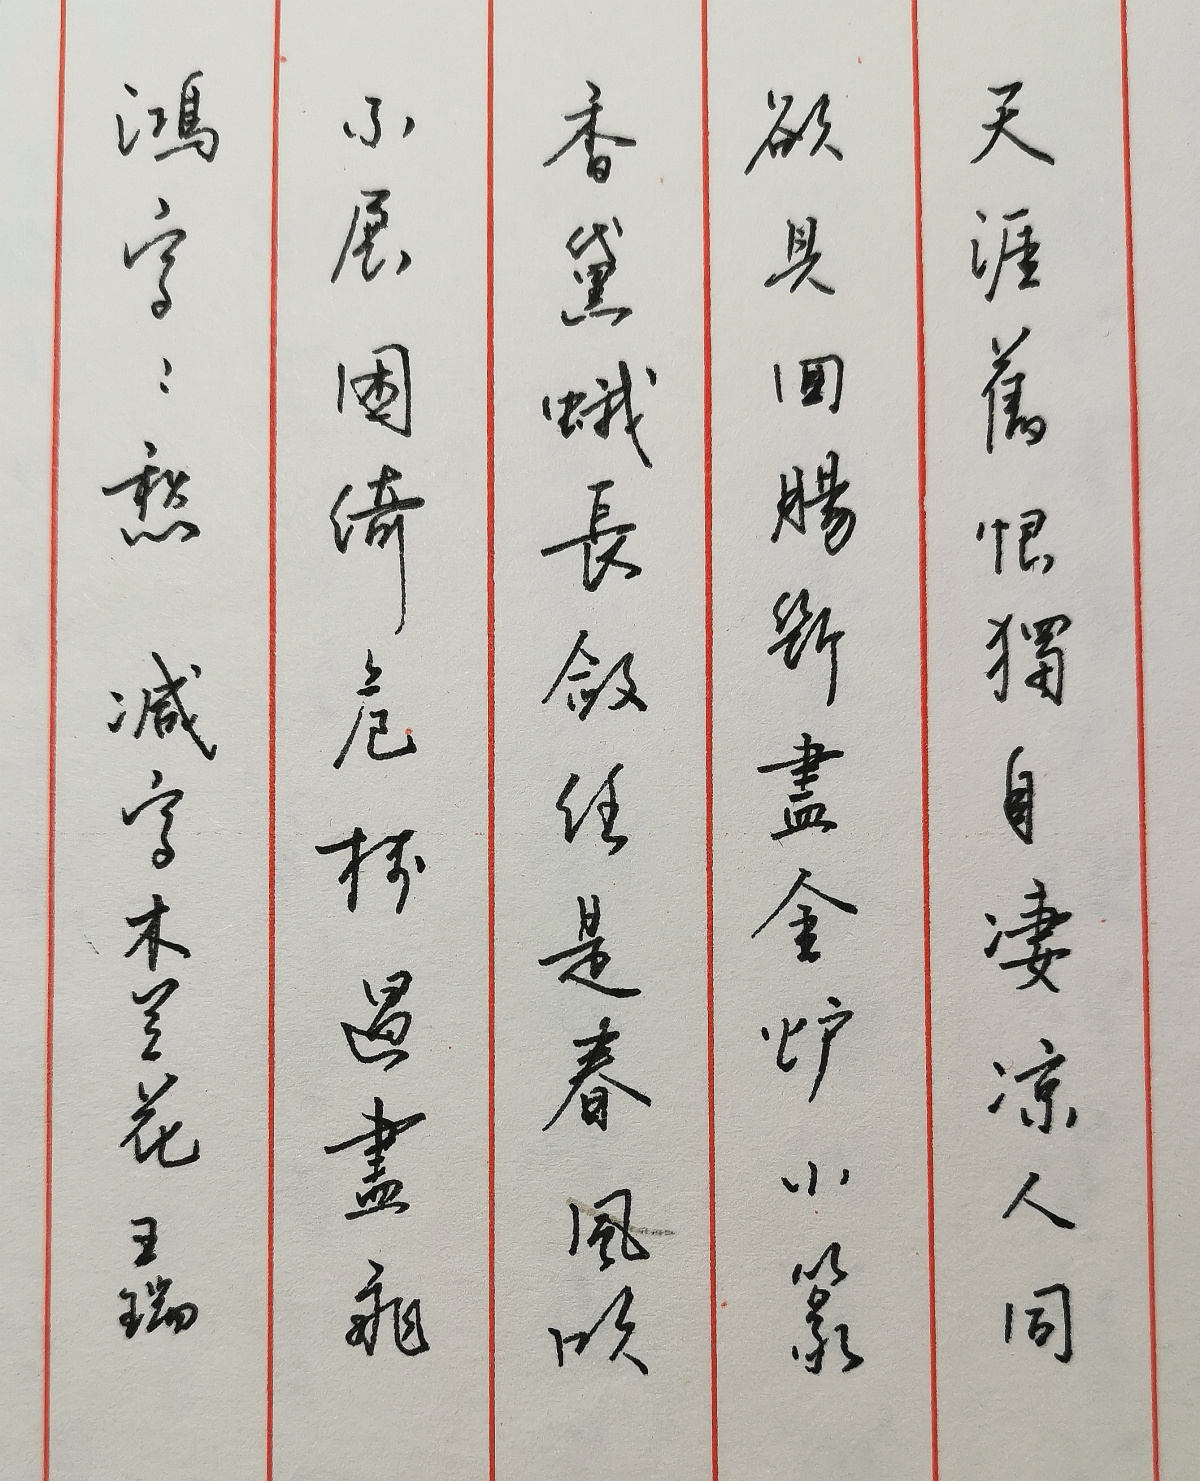 天涯舊恨獨自凄凉人同
欲具回腸斷盡金炉小篆
香黛蛾長斂任是春風吹
不展困倚危樓過盡飛
鴻字：愁 減字木兰花 王瑞